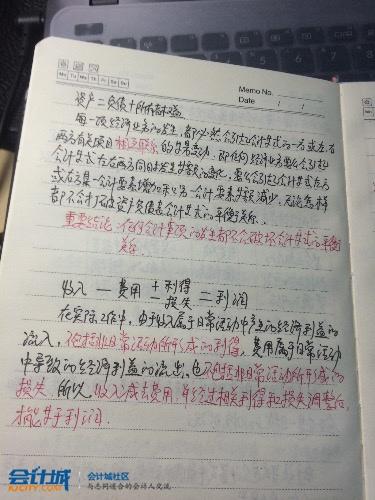 Memo No.
Mo Tu We Th Fr Sa Su
Date / /
资产=负债+所有者权益
每一项经济业务的发生,都必然会引起会计等式的一方或左右
两方有关项目相互联系的等量变动,即任何经济业务要么会引起
会计等式左右两方同时发生等额的变化,要么会引起会计等式左方
或右方某一会计要素增加和另一会计要素等额减少,无论怎样
都不会打破资产负债表会计等式的平衡关系.
重要结论:任何会计事项的发生都不会破坏会计等式的平衡
关系.
收入-费用+利得
-损失=利润
在实际工作中,由于收入属于日常活动中产生的经济利益的
流入,不包括非日常活动所形成的利得,费用属于日常活动
中导致的经济利益的流出,也不包括非日常活动所形成的
损失.所以,收入减去费用,并经过相关利得和损失调整后,
才能等于利润.
会计城
KJCITY.COM
会计城社区
与志同道合的会计人交流